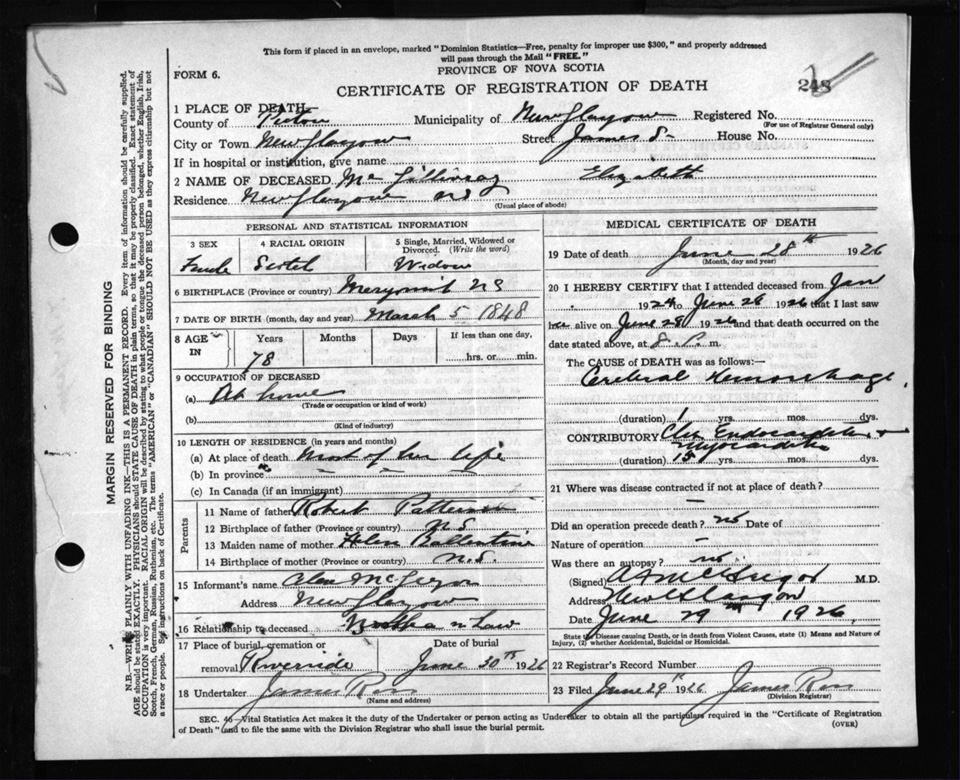 This form if placed in an envelope, marked "Dominion Statistics—Free, penalty for improper use $300," and properly addressed
will pass through the Mail "FREE."
PROVINCE OF NOVA SCOTIA
FORM 6.
CERTIFICATE OF REGISTRATION OF DEATH
248
1 PLACE OF DEATH
County of Pictou Municipality of New Glasgow Registered No.
(For use of Registrar General only)
City or Town New Glasgow Street James St House No.
If in hospital or institution, give name
2 NAME OF DECEASED Mc Gillivray Elizabeth
Residence New Glasgow NS
(Usual place of abode)
PERSONAL AND STATISTICAL INFORMATION
3 SEX 4 RACIAL ORIGIN 5 Single, Married, Widowed or Divorced. (Write the word)
Female Scotch Widow
6 BIRTHPLACE (Province or country) NS
7 DATE OF BIRTH (month, day and year) March 5 1848
8 AGE IN Years Months Days If less than one day,
78 hrs. or min.
9 OCCUPATION OF DECEASED
(a) At home
(Trade or occupation or kind of work)
(b)
(Kind of industry)
10 LENGTH OF RESIDENCE (in years and months)
(a) At place of death Most of her life
(b) In province
(c) In Canada (if an immigrant)
Parents
11 Name of father Robert Patterson
12 Birthplace of father (Province or country) N.S
13 Maiden name of mother Helen Ballantine
14 Birthplace of mother (Province or country) N.S.
15 Informant's name
Address New Glasgow
16 Relationship to deceased in Law
17 Place of burial, cremation or removal Date of burial
Riverside June 30th 1926
18 Undertaker James Ross
(Name and address)
MEDICAL CERTIFICATE OF DEATH
19 Date of death June 28th 1926
(Month, day and year)
20 I HEREBY CERTIFY that I attended deceased from Jan
1924 to June 28 1926 that I last saw
her alive on June 28 1926 and that death occurred on the
date stated above, at 8. P. m.
The CAUSE of DEATH was as follows:
Cerebral Hemorrhage.
(duration) 1 yrs. mos. dys.
CONTRIBUTORY Endocarditis +
Myocarditis
(duration) 15 yrs. mos. dys.
21 Where was disease contracted if not at place of death?
—
Did an operation precede death? no Date of
Nature of operation —
Was there an autopsy? no
(Signed) M.D.
Address New Glasgow
Date June 29th 1926
State the Disease causing Death, or in death from Violent Causes, state (1) Means and Nature of
Injury, (2) whether Accidental, Suicidal or Homicidal.
22 Registrar's Record Number
23 Filed June 29th 1926 James Ross
(Division Registrar)
SEC. 46—Vital Statistics Act makes it the duty of the Undertaker or person acting as Undertaker to obtain all the particulars required in the "Certificate of Registration
of Death" (and to file the same with the Division Registrar who shall issue the burial permit.
(OVER)
MARGIN RESERVED FOR BINDING
N.B.—WRITE PLAINLY WITH UNFADING INK—THIS IS A PERMANENT RECORD. Every item of information should be carefully supplied.
AGE should be stated EXACTLY. PHYSICIANS should STATE CAUSE OF DEATH in plain terms, so that it may be properly classified. Exact statement of
OCCUPATION is very important. RACIAL ORIGIN will be described by stating to what people or tongue the deceased person belonged, whether English, Irish,
Scotch, French, German, Russian, Ruthenian, etc. The terms "AMERICAN" or "CANADIAN" SHOULD NOT BE USED as they express citizenship but not
a race or people. See instructions on back of Certificate.